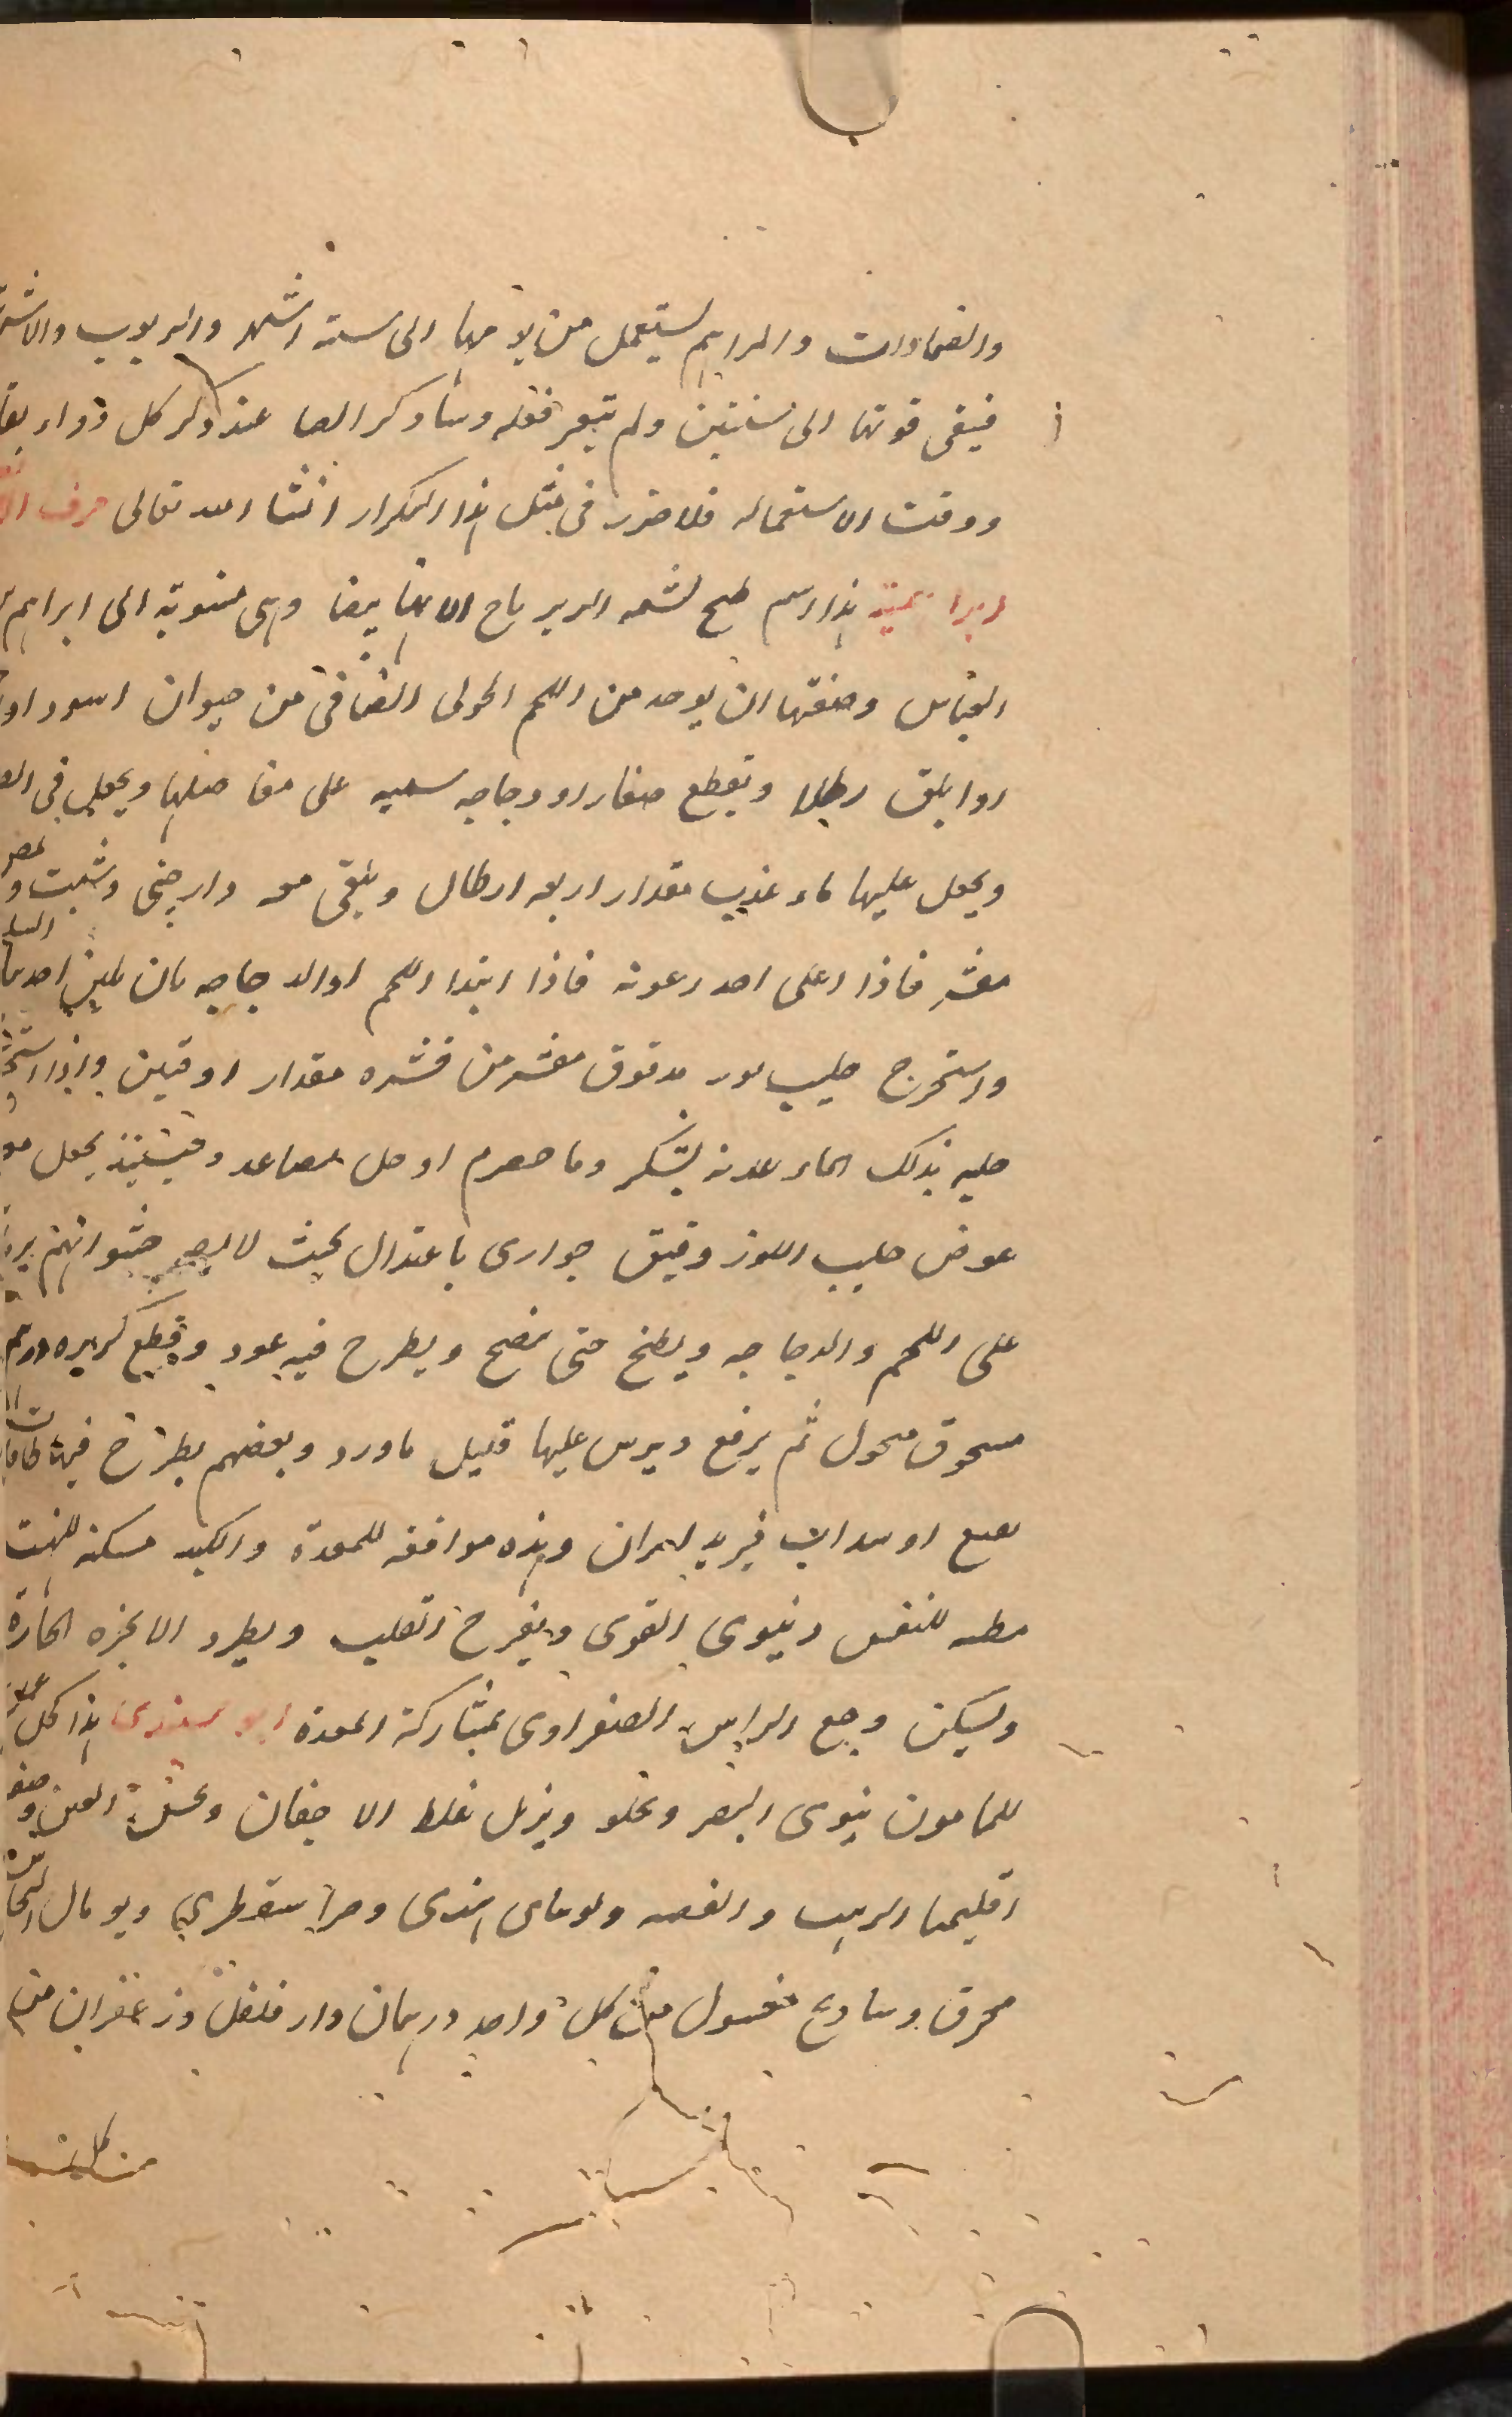 والضمادات والمراهم ليستعمل من يومها الى ستة اشهر والربوب والاشر
فيبقى قوتها الى سنتين ولم يتغير فعله وساذكر ايضا عند ذكر كل دواء بقا
ووقت الاستعماله فلا ضرر فى مثل هذا التكرار انشا الله تعالى حرف الا
ابراهيمية هذا اسم طبخ لشبه الزيرباج الا انها بيضا وهى منسوبة الى ابراهيم
العباس وصفتها ان يوخد من اللحم الحولى الضانى من حيوان اسود او
او ابلق رطلا وتقطع صغارا او دجاجه سمينه على مفاصلها ويجعل فى
ويجعل عليها ماء عذب مقدار اربعه ارطال ويلقى معه دارچنى وشبت و
مقشر فاذا اغلى اخد رغوته فاذا ابتدا اللحم او الدجاجه بان يلين احدهما
واستخرج حليب لوز مدقوق مقشر من قشره مقدار اوقيتين واذا
حليبه بذلك الماء بسكر وما حصرم او خل مصاعد وحينئيذ يجعل
عوض حليب اللوز دقيق حوارى باعتدال بحيث لا يصير
على اللحم والدجاجه ويطبخ حتى ينضج ويطرح فيه عود وقطع كزبره
مسحوق منخول ثم يرفع ويرش عليها قليل ماورد وبعضهم يطرح فيه
نعنع او سداب وهذه موافقه للمعدة والكبد مسكنه للهب
للنفس ويقوى القوى ويفرح القلب ويطرد الابخره الحارة
ويسكن وجع الراس الصفراوى بمشاركة المعدة هذا كحل
للمامون يقوى البصر ويجلو ويزيل غلظ الاجفان وصفه
اقليميا الذهب والفضه وتوتياى هندى وصبر اسقوطري وتوبال النحاس
محرق وسادج مغسول من كل واحد درهمان دار فلفل وزعفران من
من كل